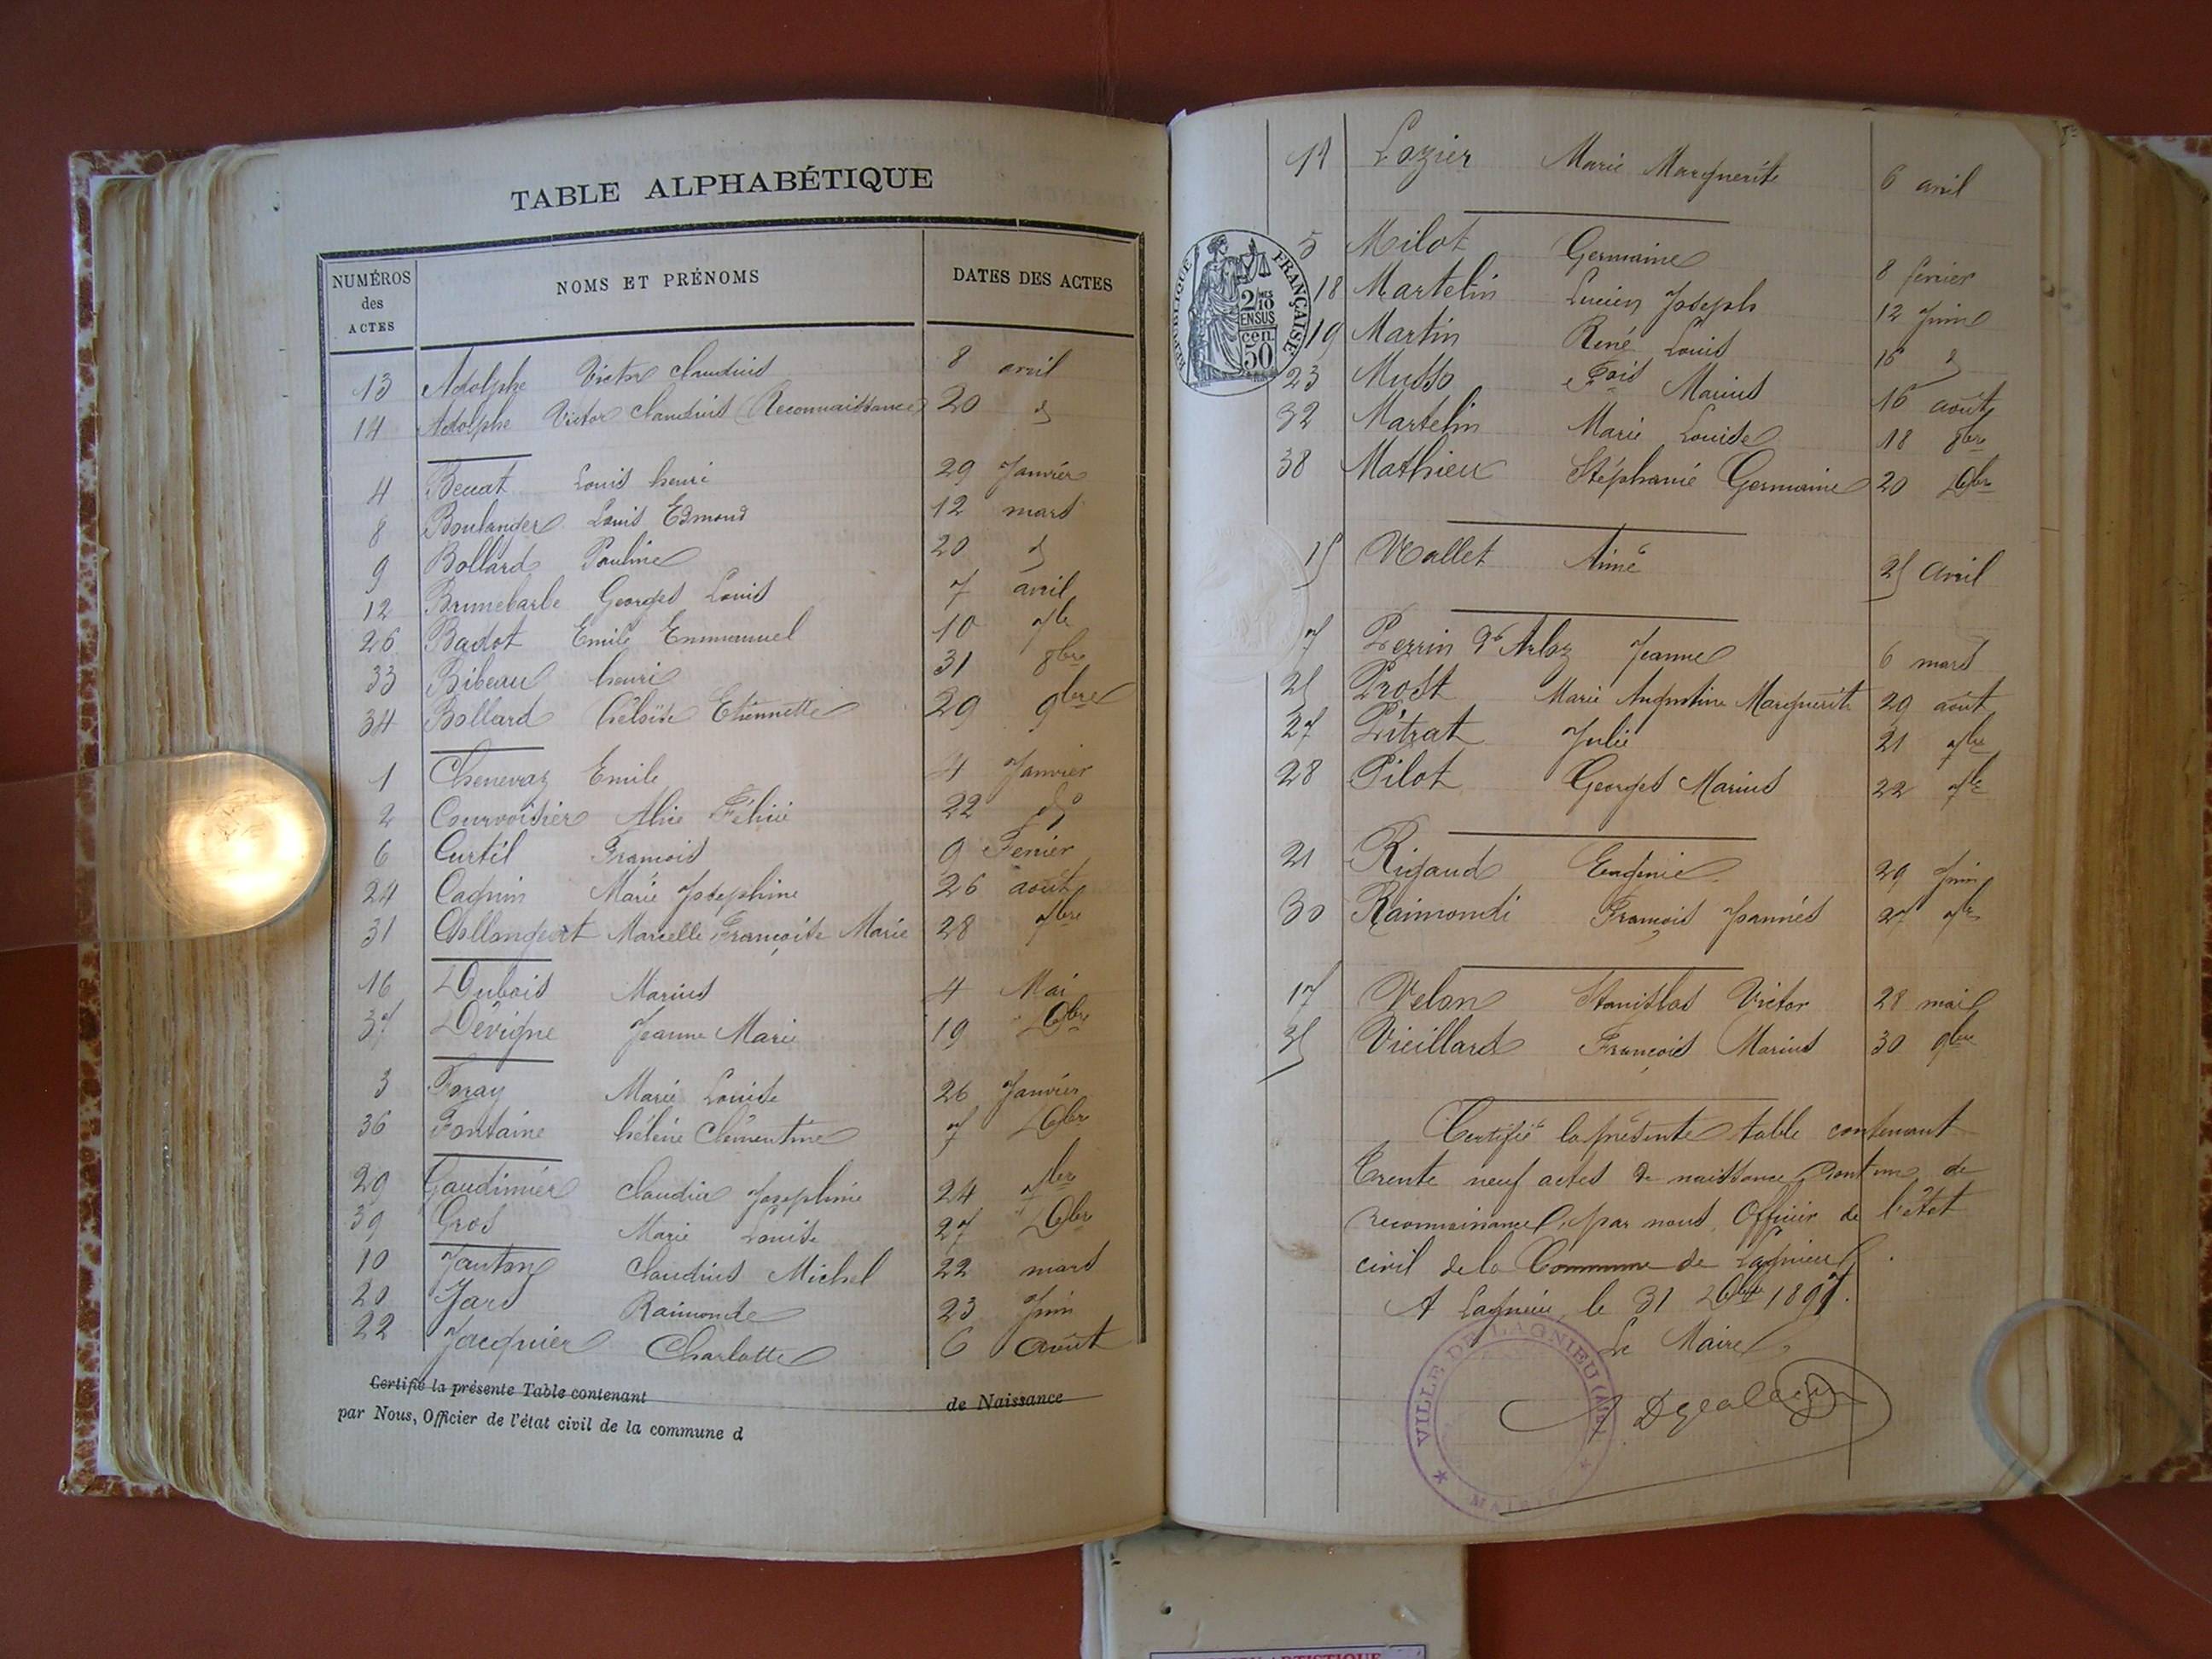 TABLE ALPHABÉTIQUE
NUMÉROS des ACTES NOMS ET PRÉNOMS DATES DES ACTES
13 Adolphe Victor Claudius 8 avril
14 Adolphe Victor Claudius (Reconnaissance) 20 d
4 Louis henri 29 Janvier
8 Boulanger Louis Edmond 12 mars
9 Bollard Pauline 20 d
12 Brunebarbe Georges Louis 7 avril
26 Badot Emile Emmanuel 10 7bre
33 Bibeau henri 31 8bre
34 Bollard héloïse Etiennette 29 9bre
1 Chenevaz Emile 4 Janvier
2 Courvoisier Alice Félicie 22 do
6 Curtil François 9 Fevrier
24 Cagnin Marie Josephine 26 août
31 Collangeat Marcelle Françoise Marie 28 7bre
16 Dubois Marius 4 Mai
37 Dévigne Jeanne Marie 19 Xbre
3 Foray Marie Louise 26 Janvier
36 Fontaine hélène Clémentine 7 Xbre
29 Gaudinier Claudia Joséphine 24 7bre
39 Gros Marie Louise 27 Xbre
10 Janton Claudius Michel 22 mars
20 Jars Raimonde 23 Juin
22 Jacquier Charlotte 6 Août
Certifié la présente Table contenant de Naissance
par Nous, Officier de l'état civil de la commune d
11 Lozier Marie Marguerite 6 avril
5 Milot Germaine 8 fevrier
18 Martelin Lucien Joseph 12 Juin
19 Martin René Louis 15 d
23 Musso fçois Marius 16 août
32 Martelin Marie Louise 18 8bre
38 Mathieu Stéphanie Germaine 20 Xbre
15 Nallet Aimé 25 Avril
7 Perrin d'Arloz Jeanne 6 mars
25 Prost Marie Augustine Marguerite 29 août
27 Pitrat Julie 21 7bre
28 Pilot Georges Marius 22 7bre
21 Rigaud Eugénie 29 Juin
30 Raimondi François Joannés 27 7bre
17 Velon Stanislas Victor 28 mai
35 Vieillard François Marius 30 9bre
Certifié la présente table contenant
trente neuf actes de naissance dont un de
reconnaissance, par nous, Officier de l'état
civil de la Commune de Lagnieu.
A Lagnieu le 31 Xbre 1897.
Le Maire,
RÉPUBLIQUE FRANÇAISE
2/10 MES
EN SUS
50 cen
VILLE DE LAGNIEU (AIN)
MAIRIE